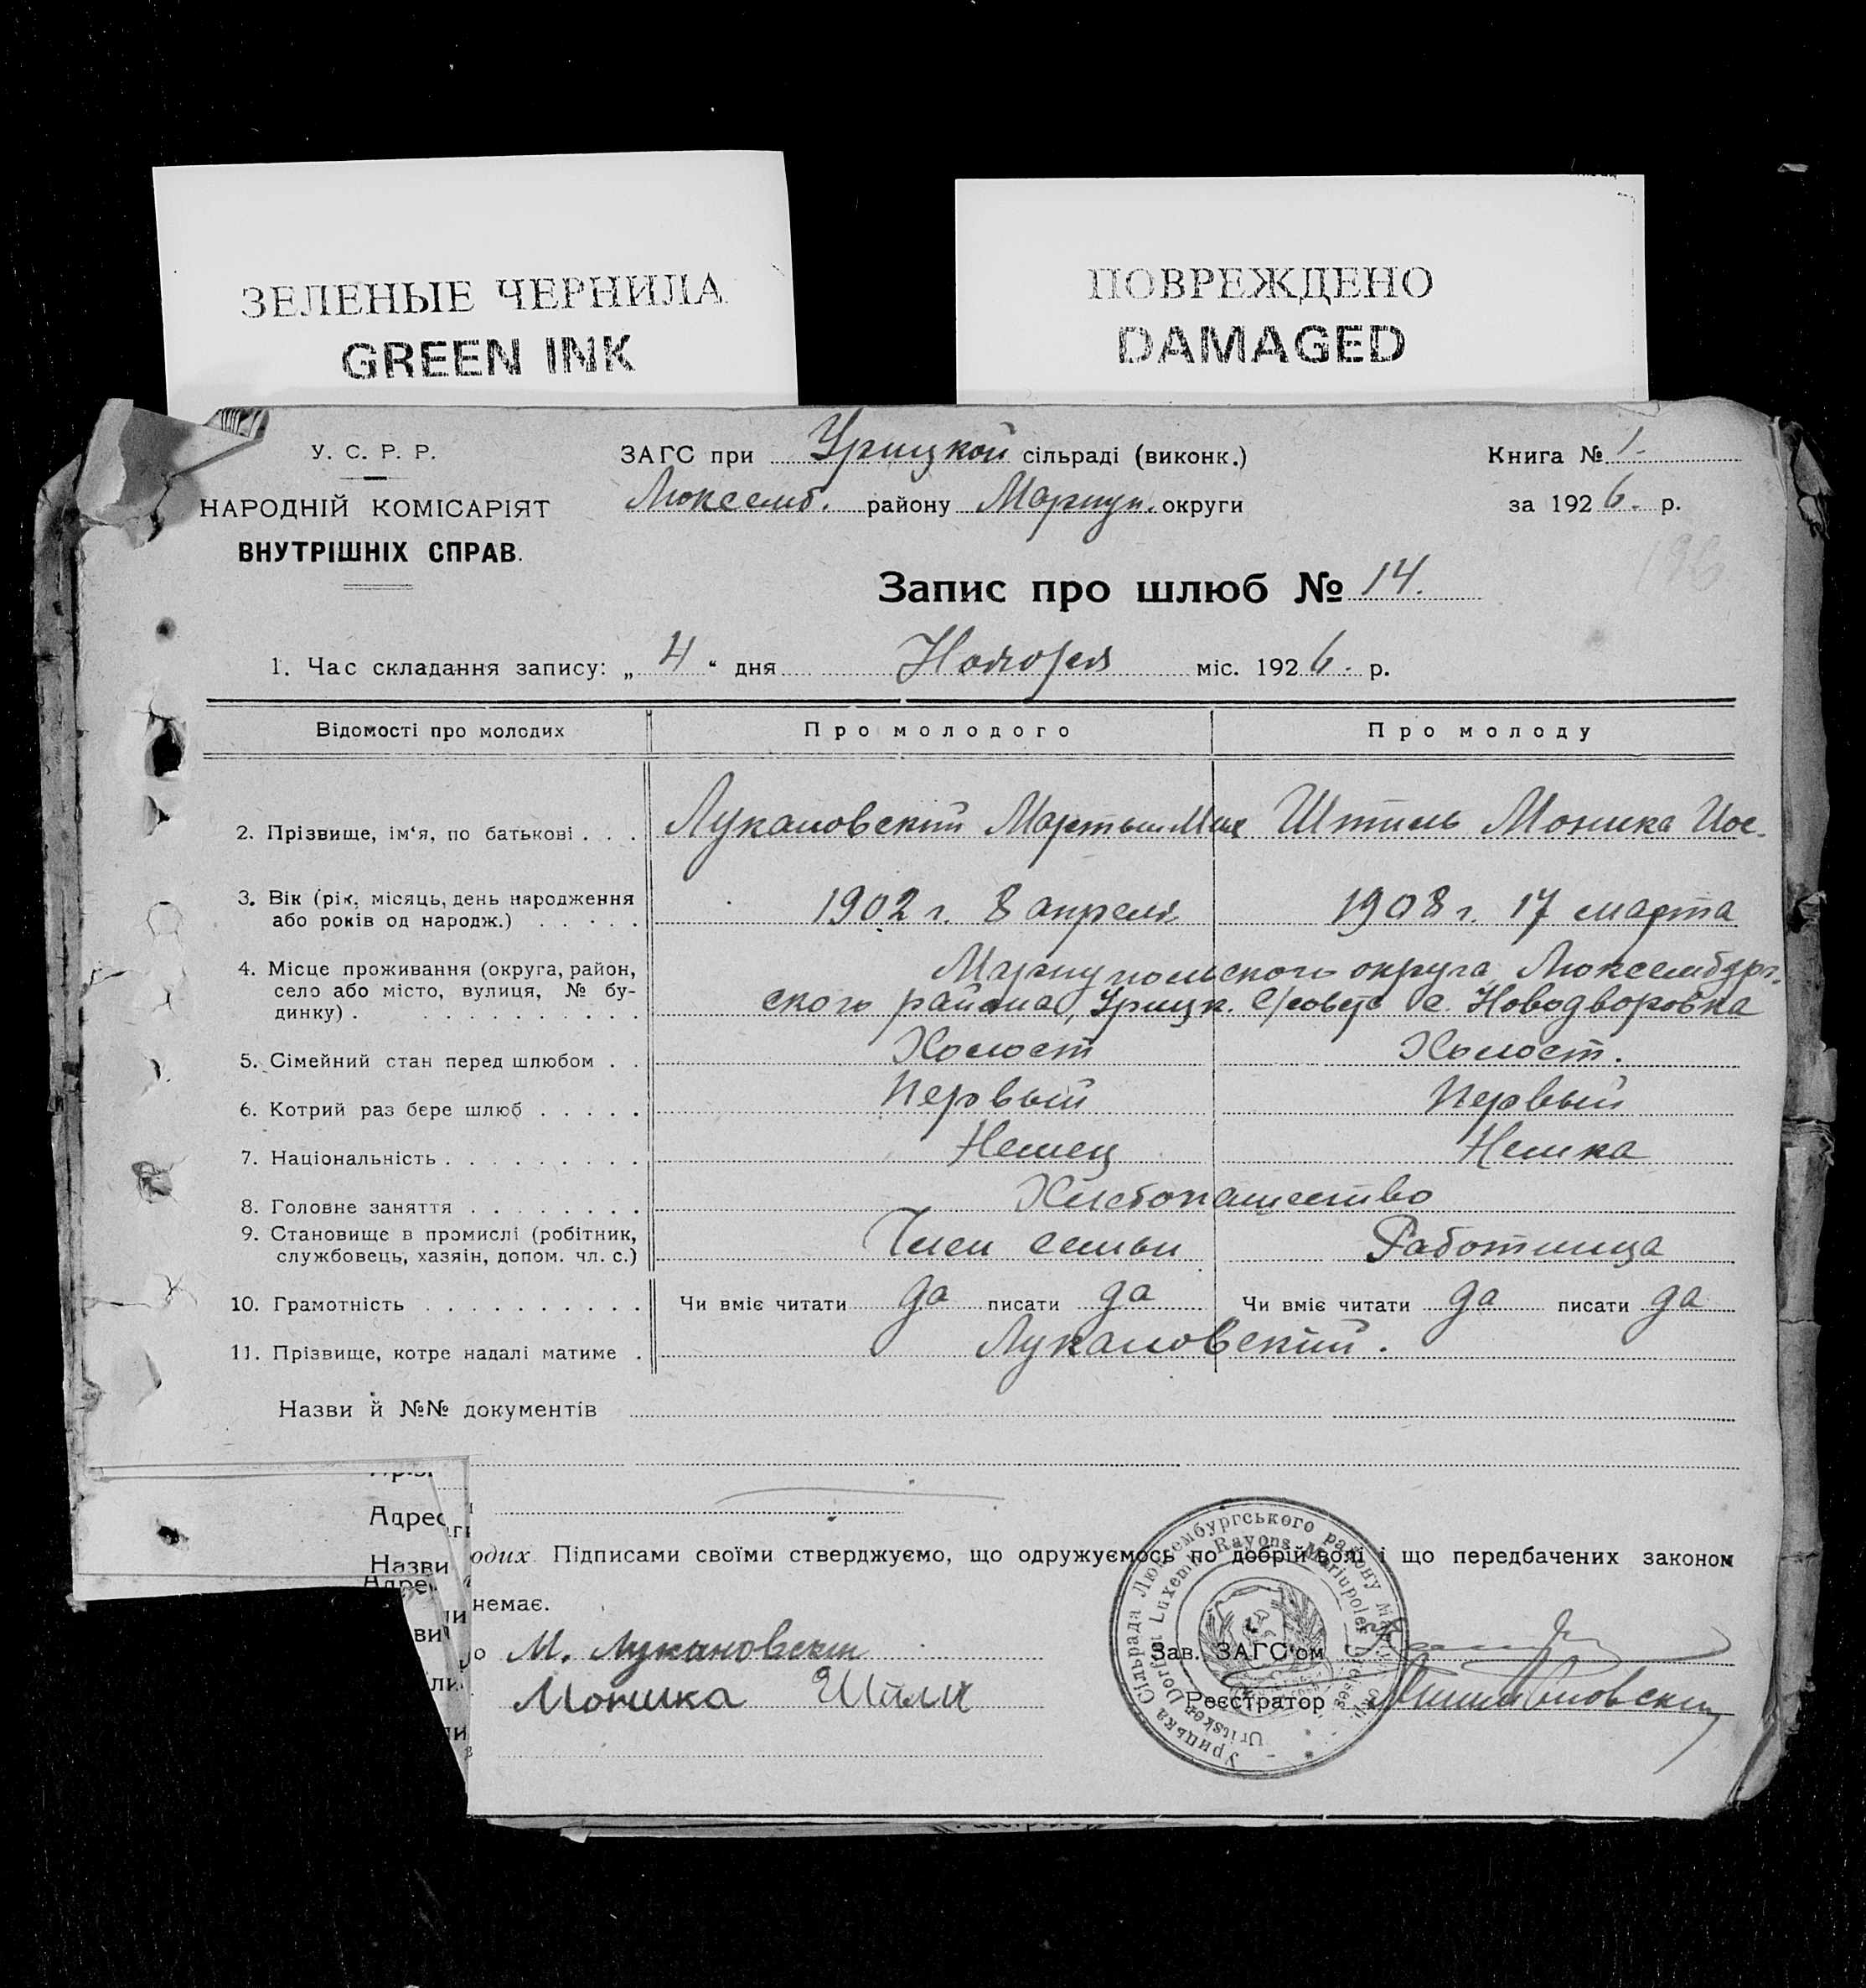 ЗЕЛЕНЫЕ ЧЕРНИЛА
GREEN INK
ПОВРЕЖДЕНО
DAMAGED
У. С. Р. Р.
НАРОДНІЙ КОМІСАРІЯТ
ВНУТРІШНІХ СПРАВ.
ЗАГС при Урицкой сільраді (виконк.)
Люксемб. району Мариуп. округи
Книга № 1.
за 1926. р.
196
Запис про шлюб № 14.
1. Час складання запису: „ 4 “ дня Ноября міс. 1926. р.
Відомості про молодих Про молодого Про молоду
2. Прізвище, ім‘я, по батькові . . . Лукановский Мартын Мих Штиль Моника Иос.
3. Вік (рік, місяць, день народження
або років од народж.) . . . . . 1902 г. 8 апреля 1908 г. 17 марта
4. Місце проживання (округа, район, Мариупольского округа, Люксембург-
село або місто, вулиця, № бу- ского района, Урицк. с/совета с. Новодворовка
динку) . . . . . . . . . .
5. Сімейний стан перед шлюбом . . Холост Холост.
6. Котрий раз бере шлюб . . . . . Первый Первый
7. Національність . . . . . . . . . Немец Немка
8. Головне заняття . . . . . . . . Хлебопашество
9. Становище в промислі (робітник,
службовець, хазяін, допом. чл. с.) Член семьи Работница
10. Грамотність . . . . . . . . . . Чи вміє читати да писати да Чи вміє читати да писати да
11. Прізвище, котре надалі матиме . Лукановский.
Назви й №№ документів
Адрес
Назви
одих. Підписами своїми стверджуємо, що одружуємось по добрій волі і що передбачених законом
немає.
М. Лукановский
Моника Штиль
Зав. ЗАГС'ом
Реєстратор
Урицька Сільрада Люксембургського району
Uritsker Dorfrat Luxemb. Rayons Mariupoler Kreises